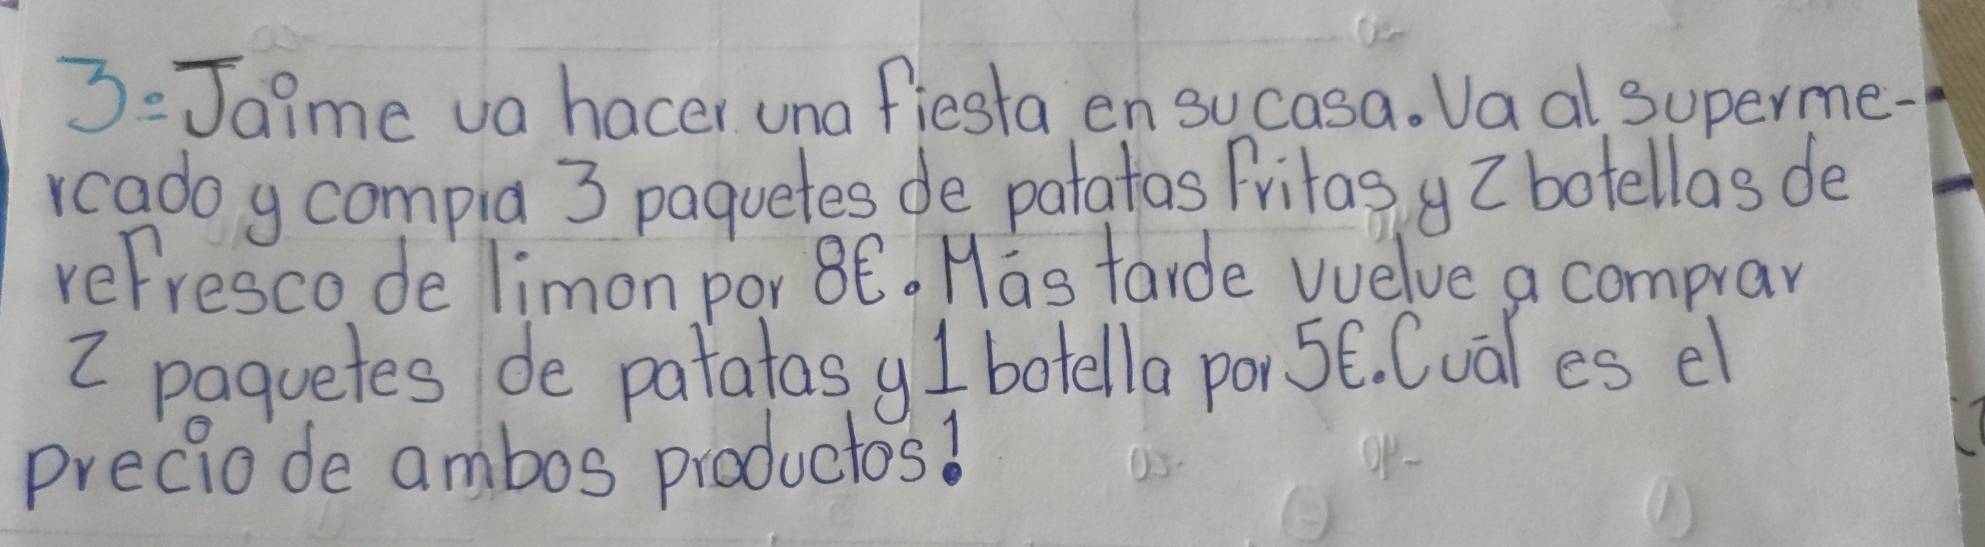 3= Jaime va hacer una fiesta en su casa. Va al superme-
rcado y compra 3 paquetes de patatas fritas y 2 botellas de
refresco de limon por 8€. Más tarde vuelve a comprar
2 paquetes de patatas y 1 botella por 5€. Cuál es el
precio de ambos productos!